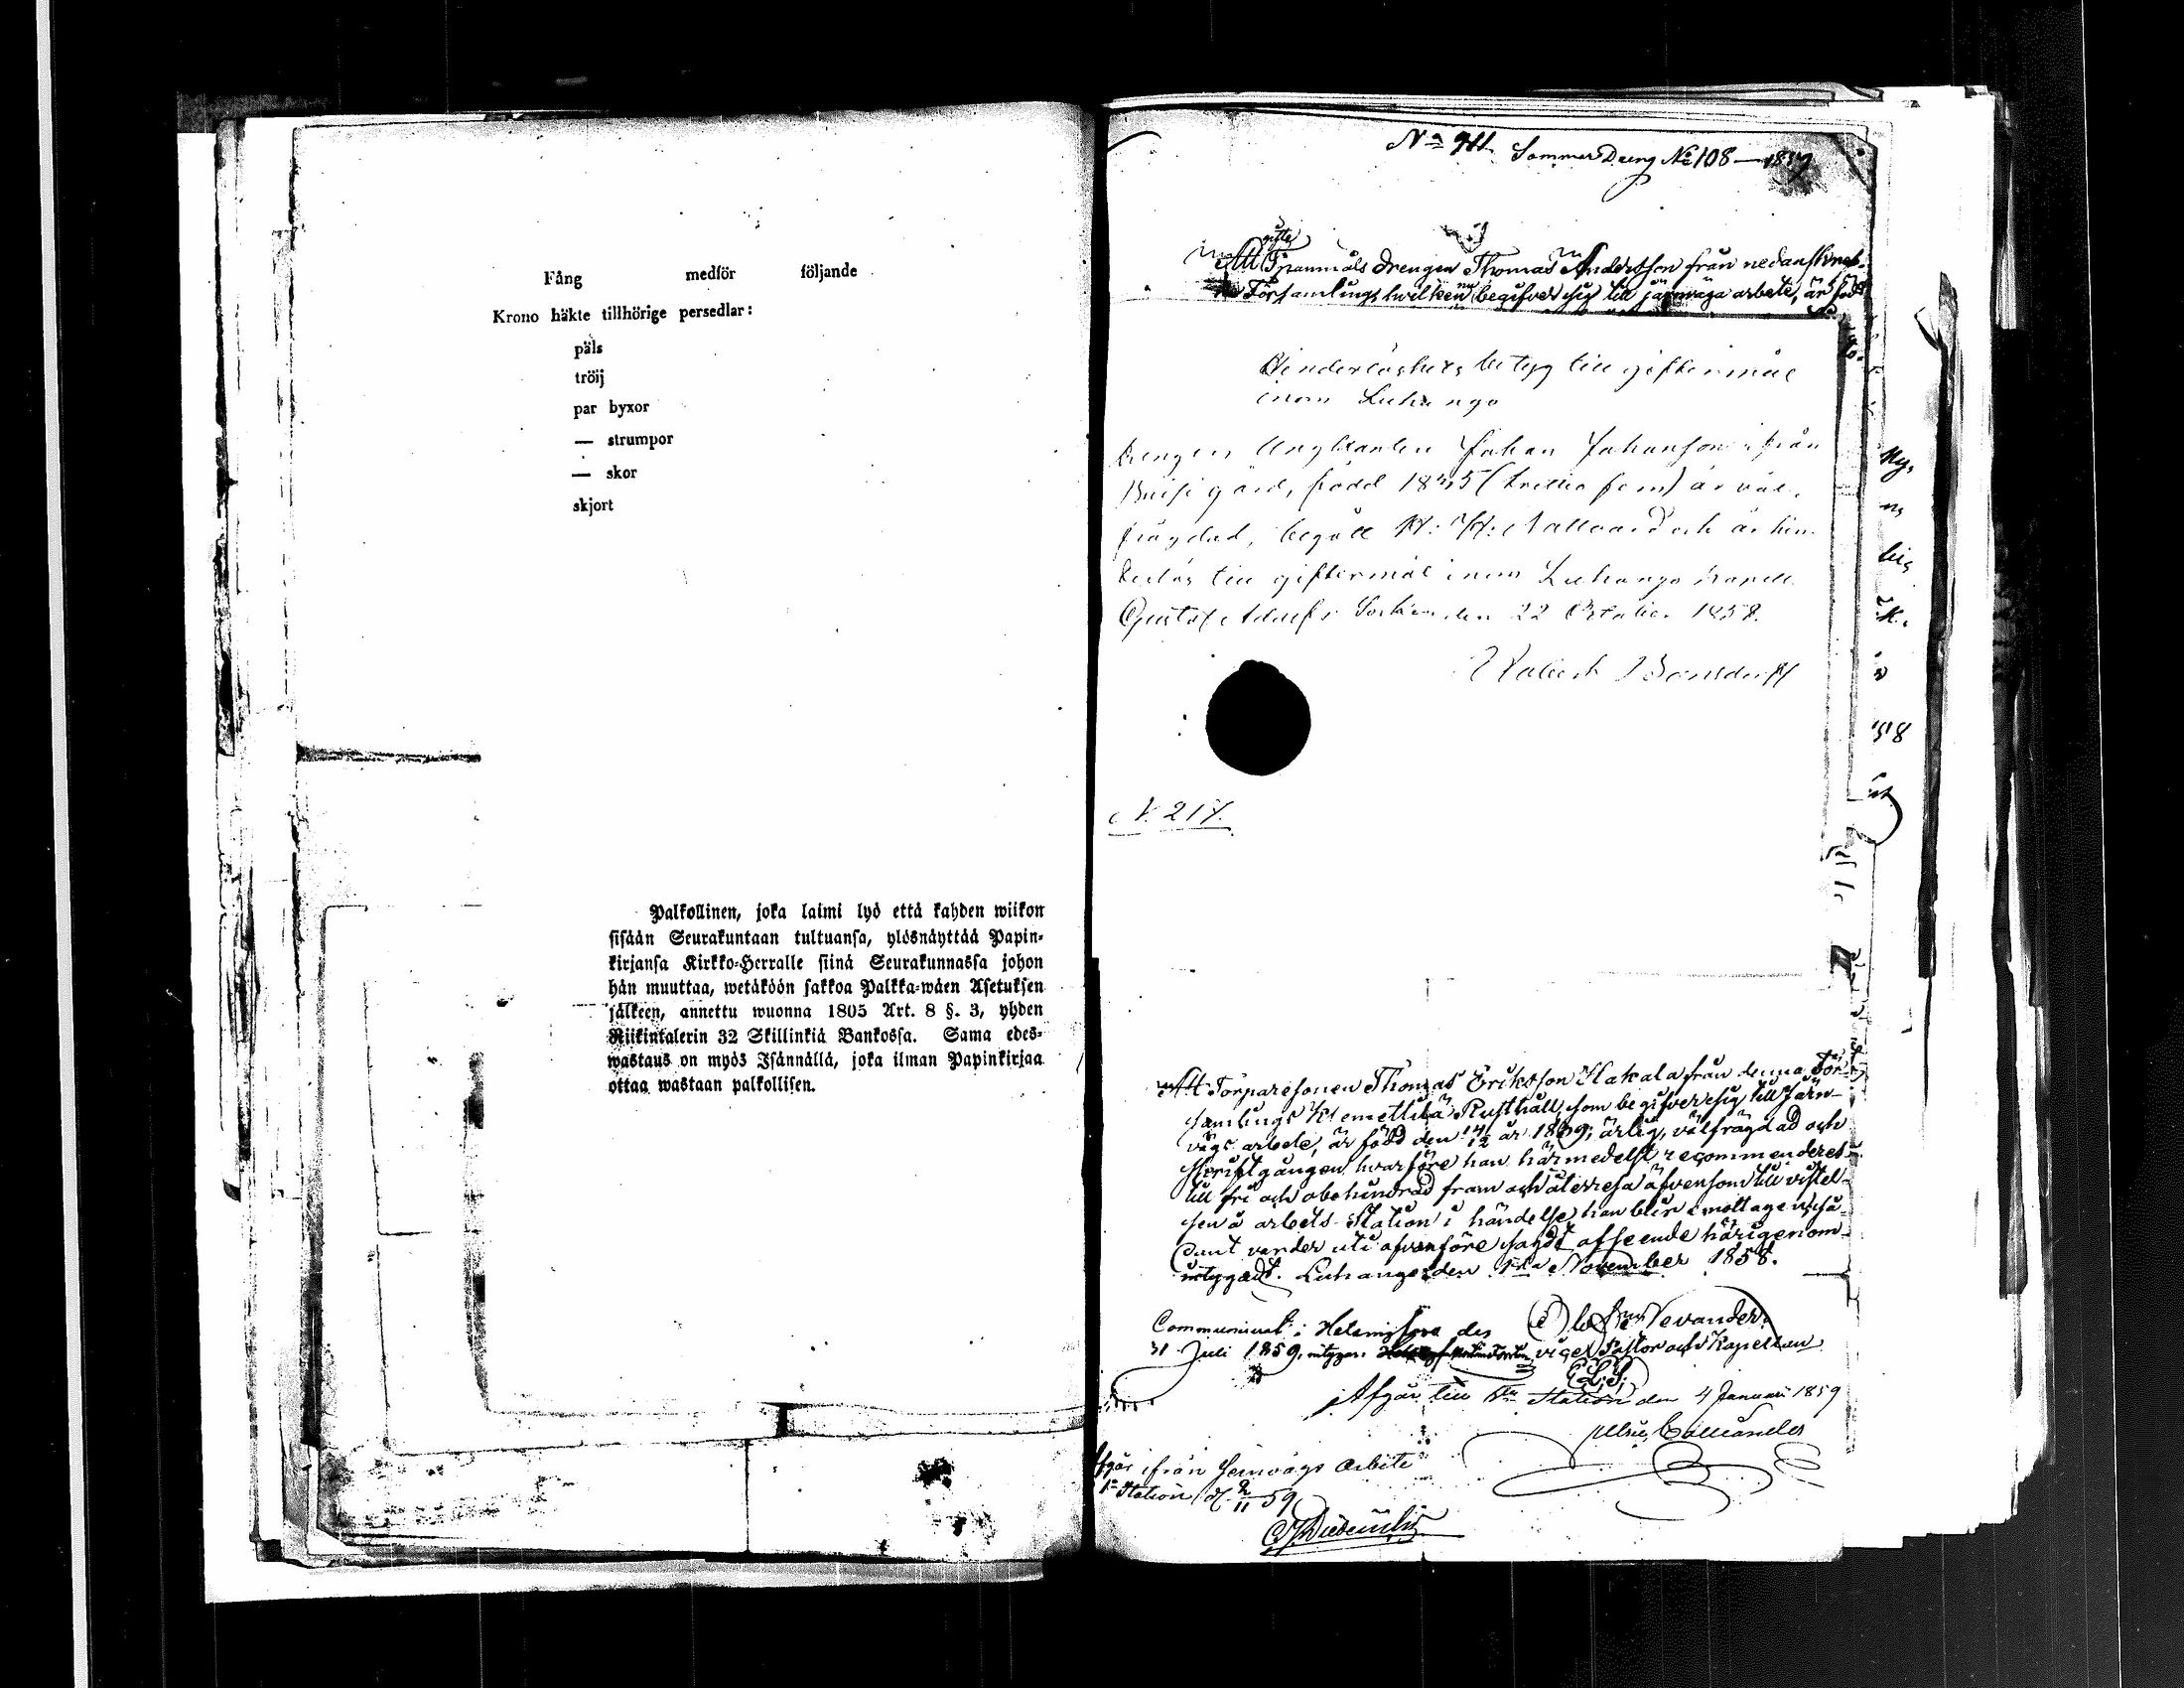 Fång medför följande
Krono häkte tillhörige persedlar:
päls
tröij
par byxor
— strumpor
— skor
skjort
Palkollinen, joka laimi lyö että kahden wiikon
sisään Seurakuntaan tultuansa, ylösnäyttää Papin-
kirjansa Kirkko-Herralle siinä Seurakunnassa johon
hän muuttaa, wetäköön sakkoa Palkka-wäen Asetuksen
jälkeen, annettu wuonna 1805 Art. 8 §. 3, yhden
Riikintalerin 32 Skillinkiä Bankossa. Sama edes-
wastaus on myös Isännällä, joka ilman Papinkirjaa
ottaa wastaan palkollisen.
No 911 No 108 — 1857
gifte
Att Spannmåls drengen Thomas Andersson från nedanskref-
ne Församling, hwilken nu begifver sig till järnväga arbete, är född
Hinderlöshets betyg till giftermål
inom Luhango
Drengen Ungkarlen Johan Johansson ifrån
gård, född 1835 (trettio fem) är väl
frägdad, begått H. H. Nattvard och är hin-
derlös till giftermål inom Luhango Kapell.
Gustaf Adolfs Socken den 22 October 1858.
Robert Bonsdorff
N. 217.
Att Torparesonen Thomas Eriksson Hakala från denna För-
samlings Klemettilä Rusthåll, som begifver sig till Järn-
vägs arbete, är född den 14/12 år 1839, ärlig, välfrägdad och
Skriftgången hvarföre han härmedelst recommenderes
till fri och obehindrad fram och återresa äfvensom till vistel-
sen å arbets Station i händelse han blir emottagen, så-
dant varder uti ofvanföre sagdt afseende härigenom
intygadt. Luhango den 1sta November 1858.
Communicerat i Helsingfors den
31 Juli 1859, intygar.
vice Pastor och Kapellan
(L. S.)
Afgår till Station den 4 Januari 1859
Afgår ifrån Jernvägs Arbete
1e Station d. 2/11 59